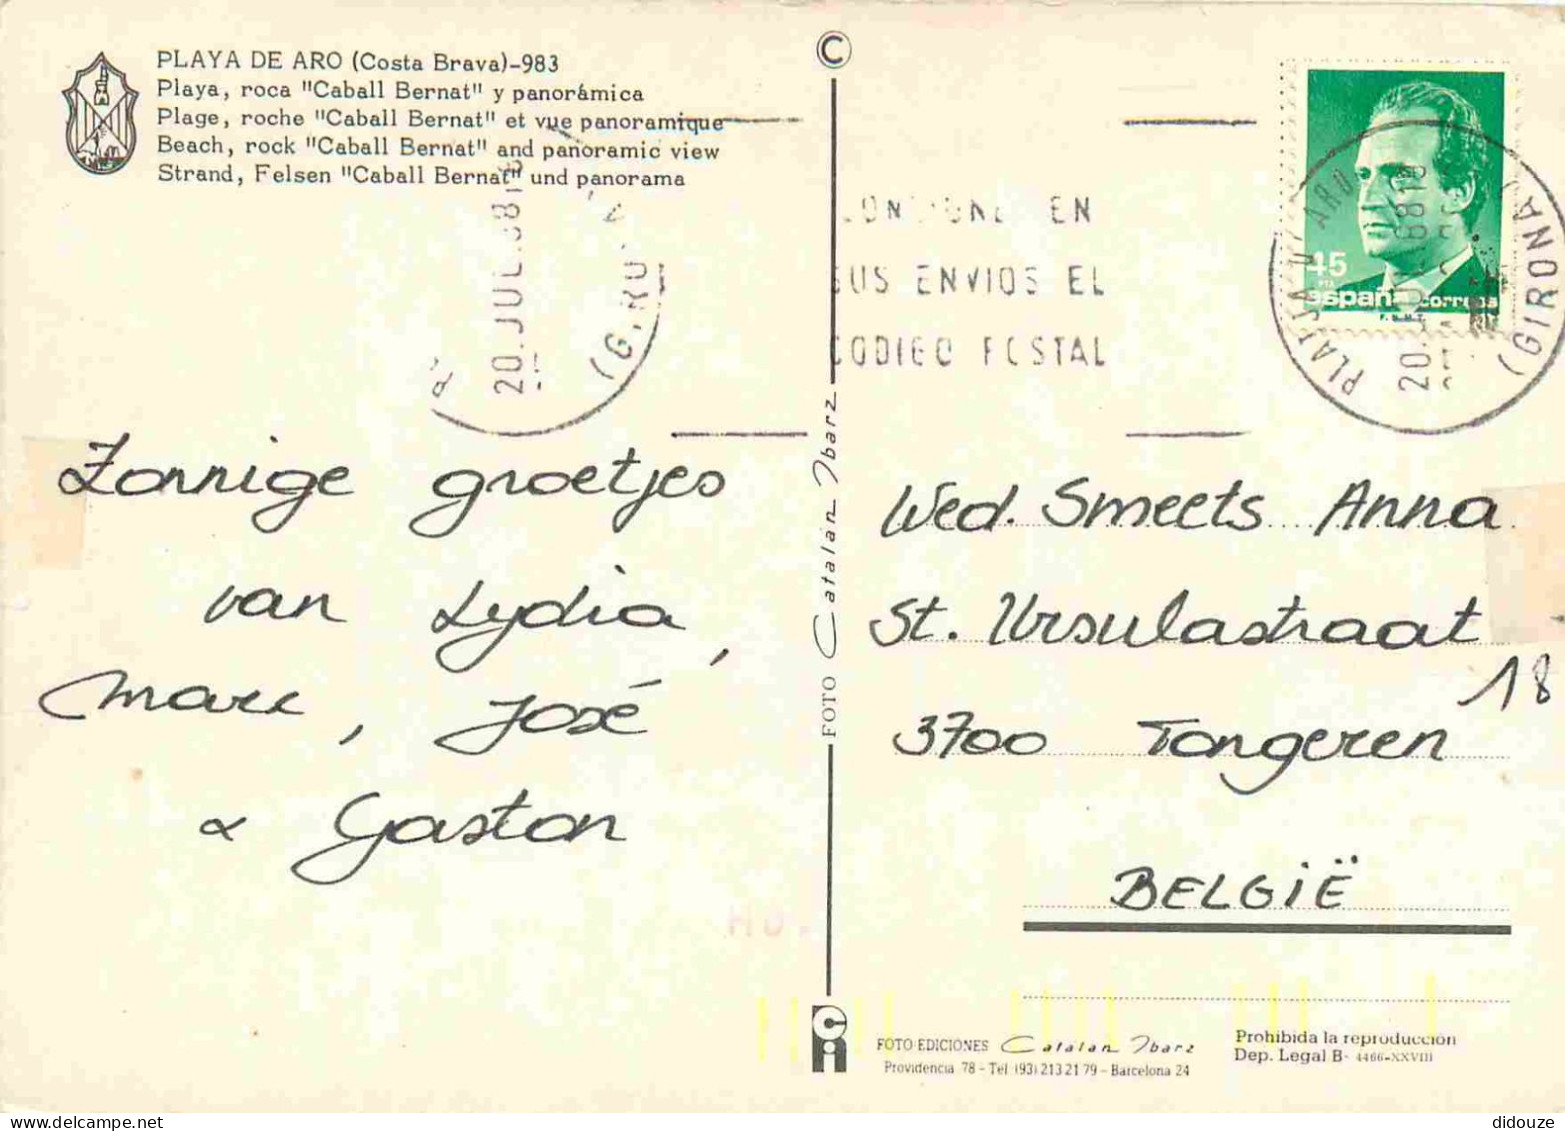 PLAYA DE ARO (Costa Brava)-983
Playa, roca "Caball Bernat" y panorámica
Plage, roche "Caball Bernat" et vue panoramique
Beach, rock "Caball Bernat" and panoramic view
Strand, Felsen "Caball Bernat" und panorama
20.JUL.88
(GIRONA)
Zonnige groetjes
van Lydia,
Marc, José
& Gaston
©
FOTO Catalan Ibarz
EN
SUS ENVIOS EL
CODIGO POSTAL
45
PTA
españa correos
F.N.M.T.
PLATJA D'ARO
(GIRONA)
20
Wed. Smeets Anna
St. Ursulastraat
18
3700 Tongeren
BELGIË
FOTO EDICIONES Catalan Ibarz
Providencia 78 - Tel (93) 213 21 79 - Barcelona 24
Prohibida la reproducción
Dep. Legal B- 4466-XXVIII
didouze